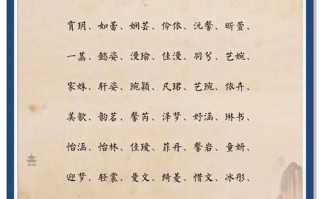 霄玥、如蔷、娴芸、伶依、沅馨、昕萱、
一菡、懿姿、漫瑜、佳漫、羽兮、艺婉、
家姝、轩姿、琬颖、凡珺、艺琬、依卉、
美歆、韵茗、馨芮、泽梦、妤涵、琳书、
怡涵、怡林、佳瑷、菲丹、馨岩、童妍、
迎梦、轻裳、曼文、绮菱、惜文、冰彤、